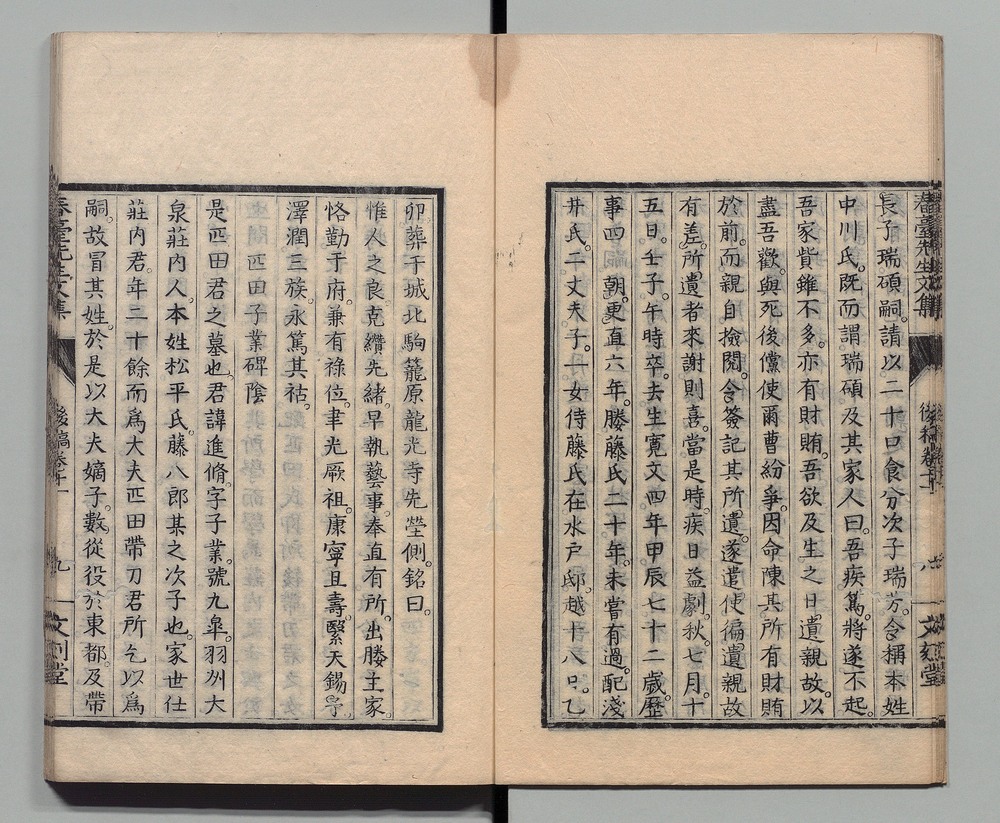 春臺先生文集 後稿卷十一 八 文刻堂
長子瑞碩嗣。請以二十口食分次子瑞芳。令稱本姓
中川氏。既而謂瑞碩及其家人曰。吾疾篤。將遂不起。
吾家貲雖不多。亦有財賄。吾欲及生之日遺親故。以
盡吾歡。與死後儻使爾曹紛爭。因命陳其所有財賄
於前。而親自撿閱。令簽記其所遺。遂遣使徧遺親故
有差。所遺者來謝則喜。當是時。疾日益劇。秋。七月。十
五日。壬子。午時卒。去生寬文四年甲辰七十二歲。歷
事四朝。更直六年。媵藤氏二十年。未嘗有過。配淺
井氏。二丈夫子。一女侍藤氏在水戶邸。越十八口。乙
卯。葬于城北駒籠原龍光寺先塋側。銘曰。
惟人之良。克纘先緒。早執藝事。奉直有所。出媵主家。
恪勤于府。兼有祿位。聿光厥祖。康寧且壽。繄天錫予。
澤潤三族。永篤其祜。
匹田子業碑陰
是匹田君之墓也。君諱進脩。字子業。號九皐。羽州大
泉莊內人。本姓松平氏。藤八郎某之次子也。家世仕
莊內君。年二十餘而爲大夫匹田帶刀君所乞以爲
嗣。故冒其姓。於是以大夫嫡子。數從役於東都。及帶
春臺先生文集 後稿卷十一 九 文刻堂